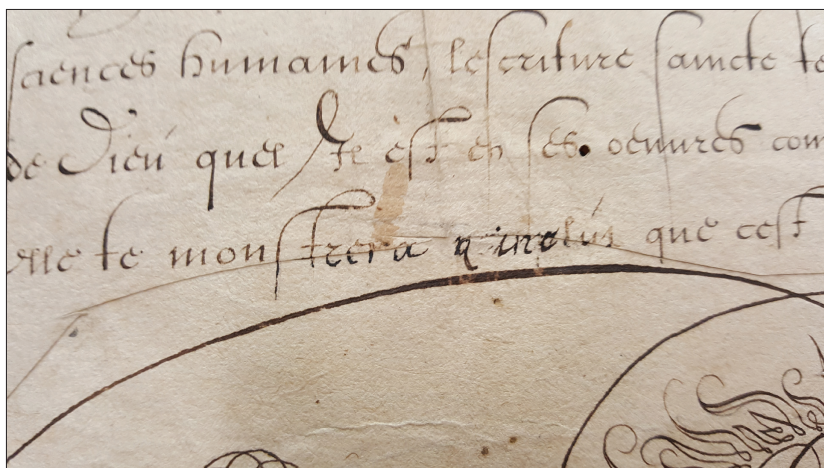 sciences humaines, lescriture saincte te
de Dieu quel Il est en ses oeuvres com
elle te monstrera que cest